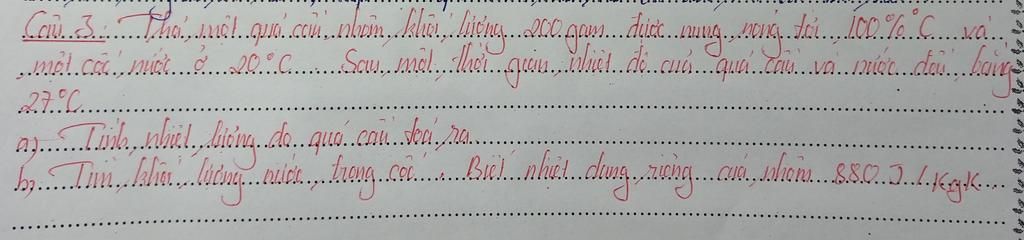 Câu 3: Thả một quả cầu nhôm khối lượng 200 gam được nung nóng tới 100%°C và
một cốc nước ở 20°C. Sau một thời gian, nhiệt độ của quả cầu và nước đều bằng
27°C
a) Tính nhiệt lượng do quả cầu toả ra
b) Tìm khối lượng nước trong cốc. Biết nhiệt dung riêng của nhôm 880 J/KgK